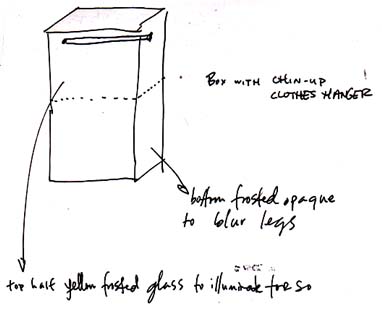 BOX WITH CHIN-UP
CLOTHES HANGER
bottom frosted opaque
to blur legs
top half yellow frosted glass to illuminate torso